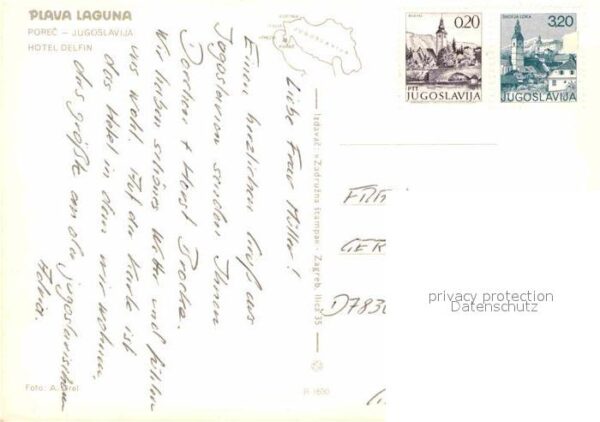 PLAVA LAGUNA
POREČ – JUGOSLAVIJA
HOTEL DELFIN
JUGOSLAVIJA
Liebe Frau Müller!
Einen herzlichen Gruß aus
Jugoslavien senden Ihnen
+ Horst
Wir haben schönes Wetter und fühlen
uns wohl. Auf der Karte ist
das Hotel in dem wir wohnen,
das größte an der jugoslavischen
Foto: A.
Izdavač: »Zadružna štampa« - Zagreb, Ilica 35
0,20
PTT
JUGOSLAVIJA
ŠKOFJA LOKA
3,20
JUGOSLAVIJA
privacy protection
Datenschutz